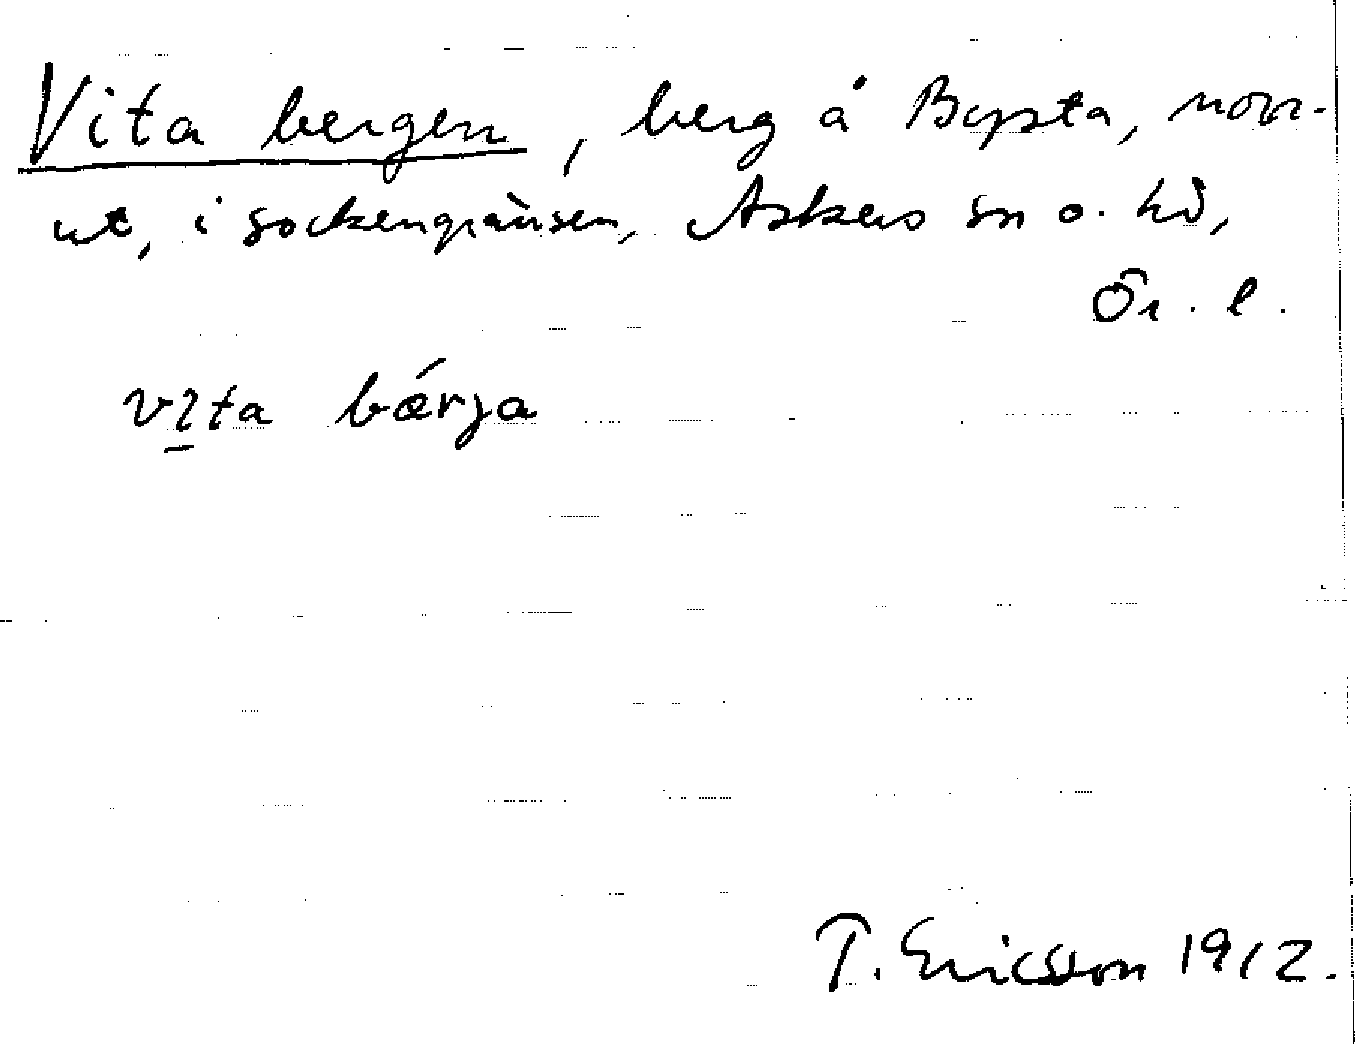 Vita bergen, berg å Bysta, norr-
ut, i sockengränsen, Askers sn o. hd,
Ör. l.
vita bǽrja
T. Ericsson 1912.